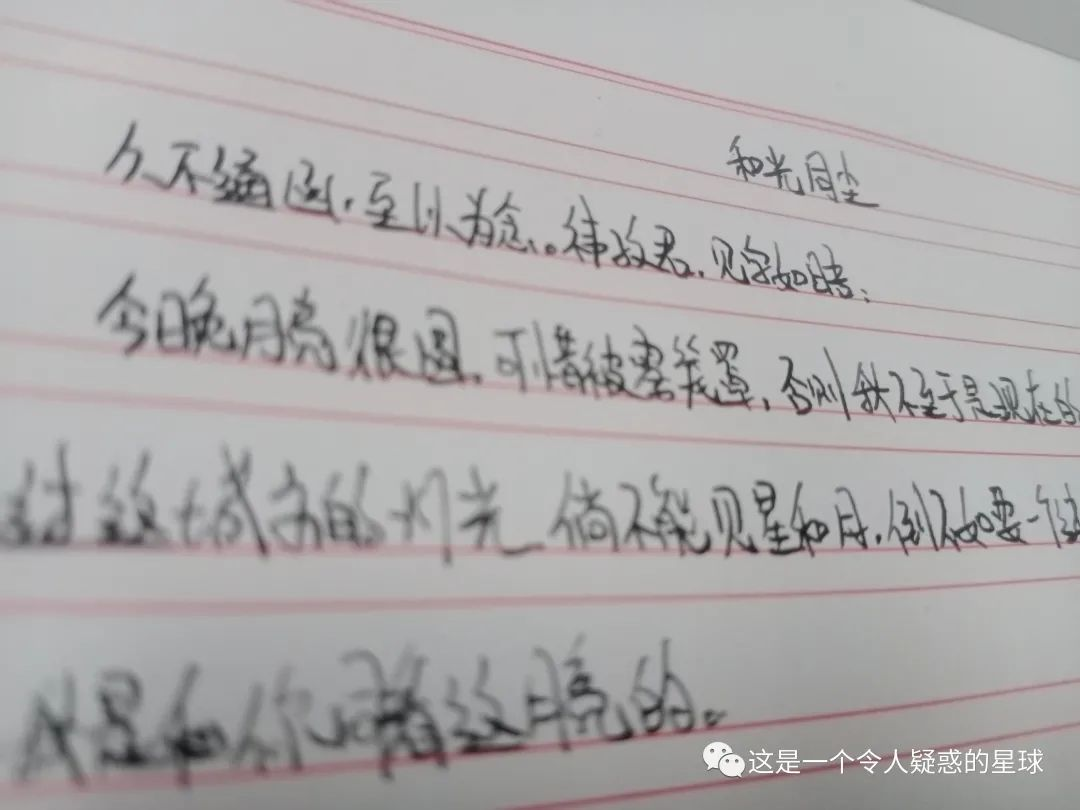 和光同尘
久不通函,至以为念。律政君,见字如晤:
今日晚月亮很圆,可惜被雾笼罩,否则我不至于是现在的
过这城市的灯光 倘不能见星和月,倒不如要一个
我是和你同看这月亮的。
这是一个令人疑惑的星球